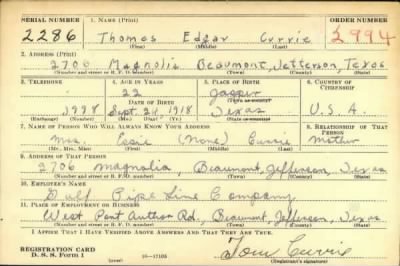 SERIAL NUMBER 1. NAME (Print) ORDER NUMBER
2286 Thomas Edgar Currie 2994
(First) (Middle) (Last)
2. ADDRESS (Print)
2706 Magnolia Beaumont, Jefferson, Texas
(Number and street or R. F. D. number) (Town) (County) (State)
3. TELEPHONE 4. AGE IN YEARS 5. PLACE OF BIRTH 6. COUNTRY OF CITIZENSHIP
22 Jasper
DATE OF BIRTH (Town or county)
Sept. 20, 1918 Texas U. S. A.
(Exchange) (Number) (Mo.) (Day) (Yr.) (State or country)
7. NAME OF PERSON WHO WILL ALWAYS KNOW YOUR ADDRESS 8. RELATIONSHIP OF THAT PERSON
Mrs. Essie (None) Currie Mother
(Mr., Mrs., Miss) (First) (Middle) (Last)
9. ADDRESS OF THAT PERSON
2706 Magnolia, Beaumont, Jefferson, Texas
(Number and street or R. F. D. number) (Town) (County) (State)
10. EMPLOYER'S NAME
Gulf Pipe Line Company
11. PLACE OF EMPLOYMENT OR BUSINESS
West Port Arthur Rd., Beaumont, Jefferson, Texas
(Number and street or R. F. D. number) (Town) (County) (State)
I AFFIRM THAT I HAVE VERIFIED ABOVE ANSWERS AND THAT THEY ARE TRUE.
REGISTRATION CARD Tom Currie
D. S. S. Form 1 (over) 16—17105 (Registrant's signature)